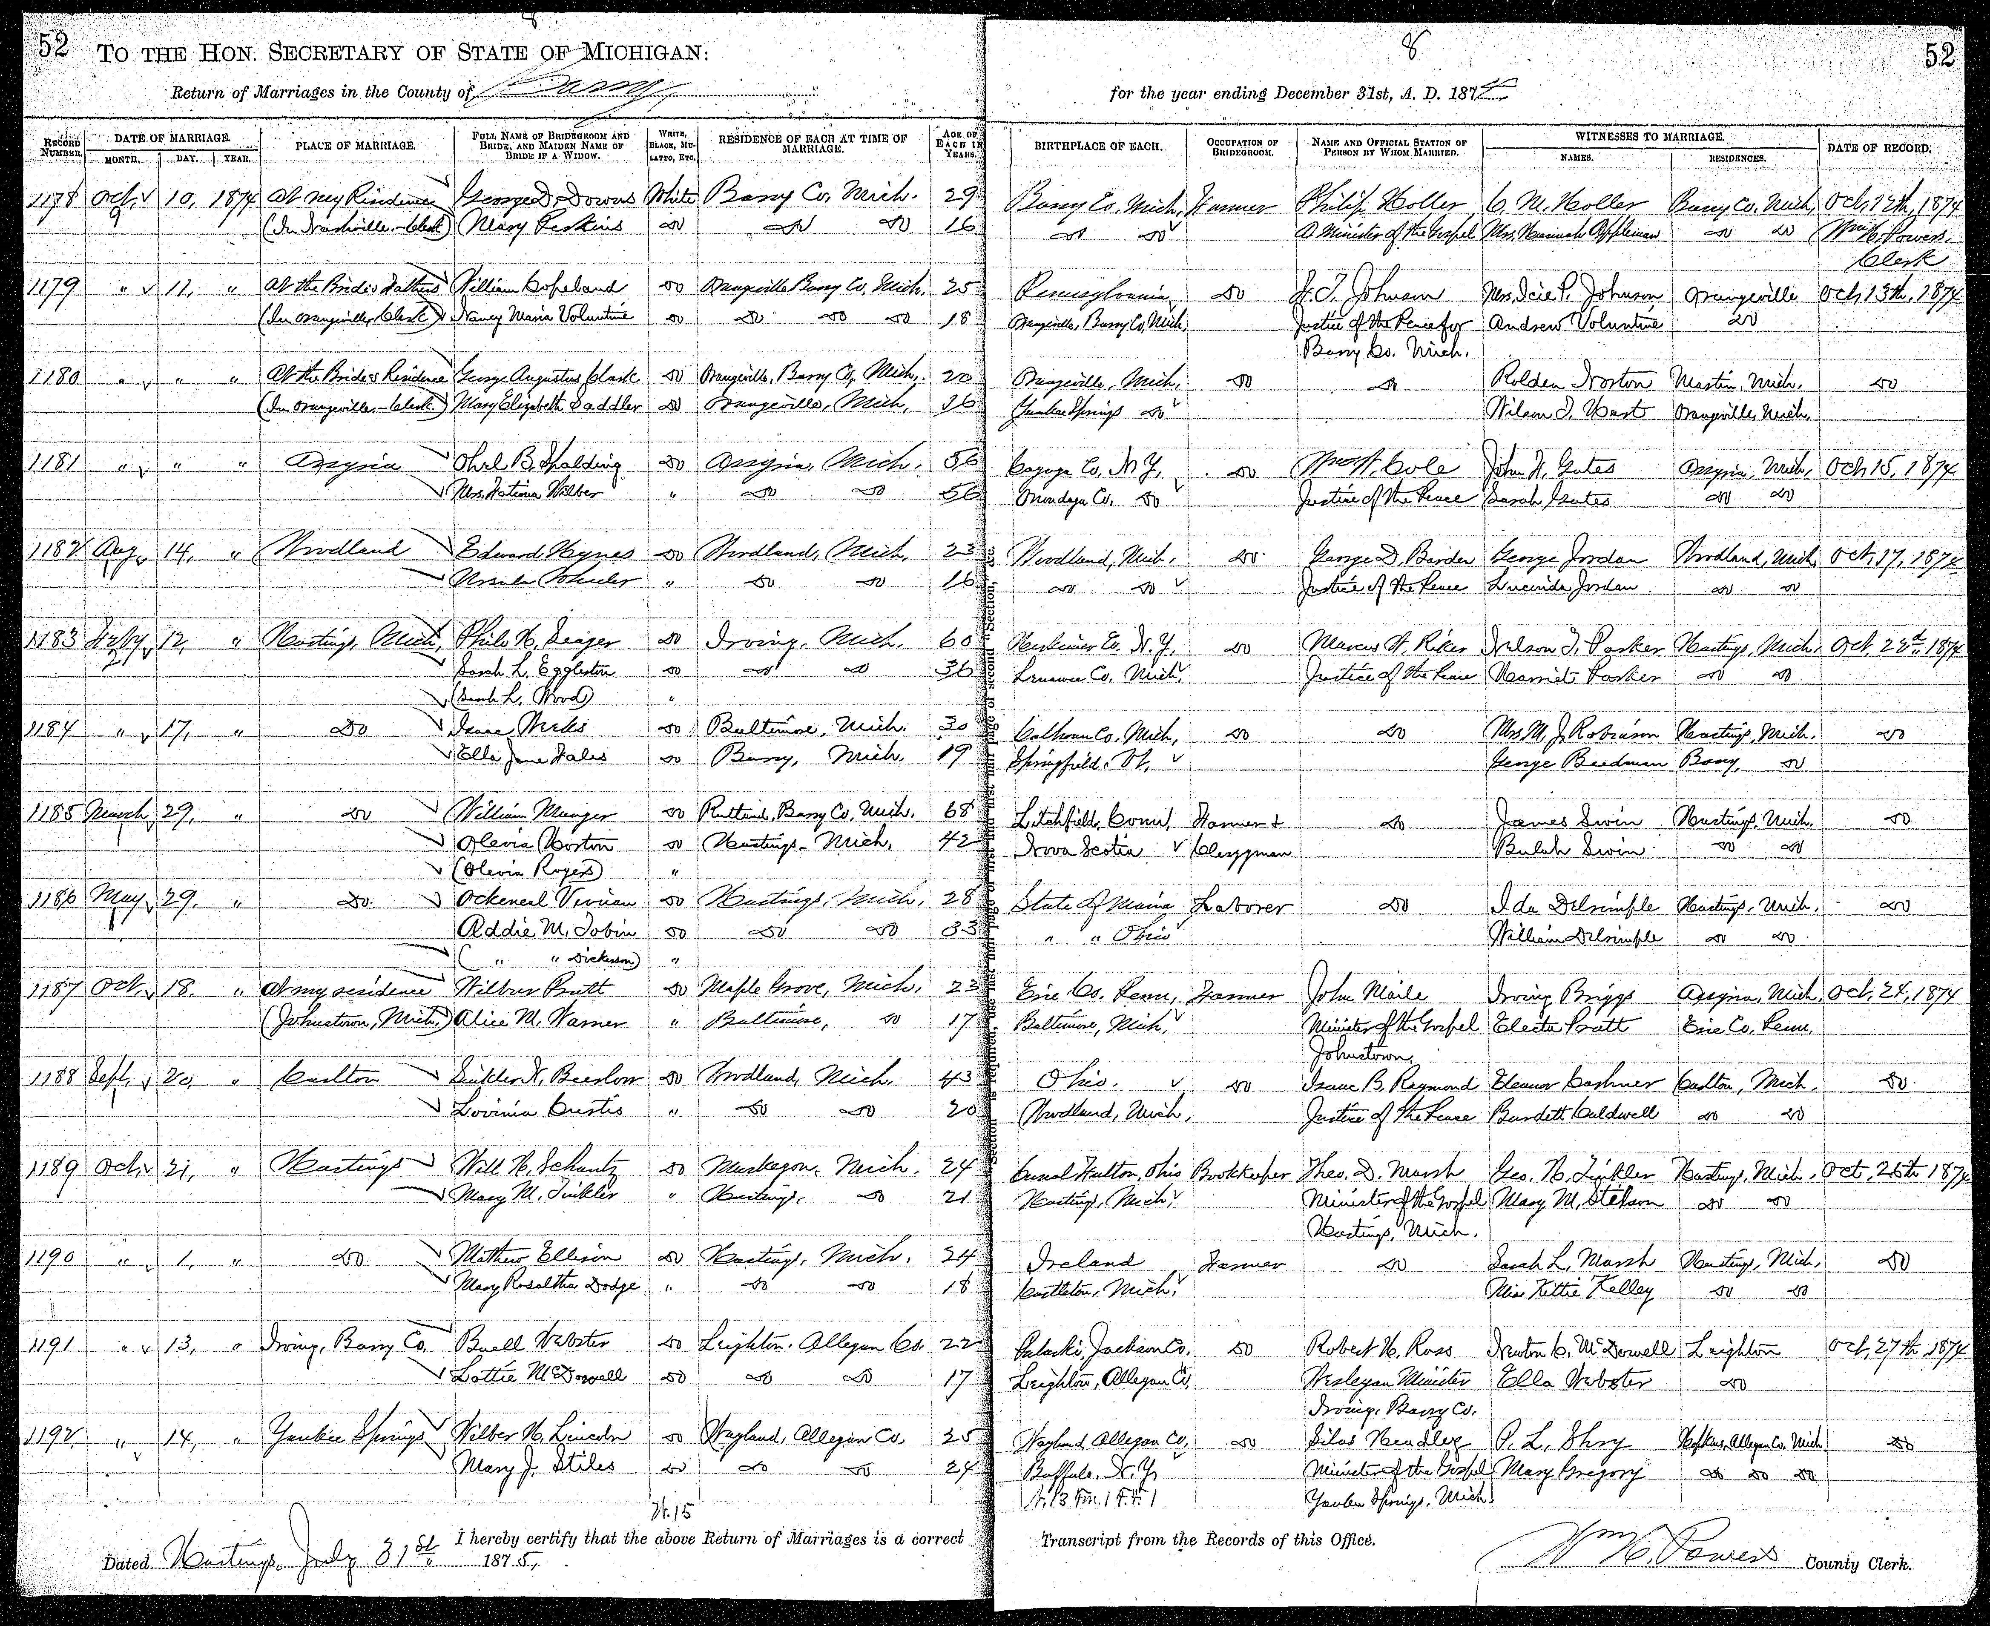 52 TO THE HON. SECRETARY OF STATE OF MICHIGAN: 8 52
Return of Marriages in the County of Barry for the year ending December 31st, A. D. 1874
RECORD NUMBER. DATE OF MARRIAGE. MONTH. DAY. YEAR. PLACE OF MARRIAGE. FULL NAME OF BRIDEGROOM AND BRIDE, AND MAIDEN NAME OF BRIDE IF A WIDOW. WHITE, BLACK, MULATTO, ETC. RESIDENCE OF EACH AT TIME OF MARRIAGE. AGE OF EACH IN YEARS. BIRTHPLACE OF EACH. OCCUPATION OF BRIDEGROOM. NAME AND OFFICIAL STATION OF PERSON BY WHOM MARRIED. WITNESSES TO MARRIAGE. NAMES. RESIDENCES. DATE OF RECORD.
1178 Oct. 10, 1874 At my Residence George D. Downs White Barry Co, Mich. 29 Barry Co, Mich, Farmer Philip Holler C. N. Holler Barry Co, Mich, Oct 12th, 1874
(In Nashville, Clerk) Mary Perkins Do Do Do 16 Do Do A Minister of the Gospel Mrs. Hannah Appleman Do Do Wm H. Powers,
Clerk
1179 " 11, " At the Brides Fathers William Copeland Do Orangeville Barry Co, Mich. 25 Pennsylvania Do J. T. Johnson Mrs. Icie P. Johnson Orangeville Oct 13th, 1874
(In Orangeville, Clerk) Nancy Maria Voluntine Do Do Do Do 18 Orangeville, Barry Co, Mich Justice of the Peace for Andrew Voluntine Do
Barry Co. Mich.
1180 " " " At the Brides Residence George Augustus Clark Do Orangeville, Barry Co, Mich. 20 Orangeville, Mich, Do Do Rolden Norton Martin, Mich. Do
(In Orangeville, Clerk) Mary Elizabeth Saddler Do Orangeville, Mich, 16 Yankee Springs Do Wilson T. Hart Orangeville, Mich.
1181 " " " Assyria B. Spalding Do Assyria, Mich. 56 Cayuga Co, N.Y, Do Cole John H. Gates Assyria, Mich, Oct 15, 1874
Mrs. Fatima Wilber " Do Do 56 Onondaga Co. Do Justice of the Peace Sarah Gates Do Do
1182 Aug. 14, " Woodland Edward Hynes Do Woodland, Mich. 23 Woodland, Mich. Do George D. Barden George Jordan Woodland, Mich Oct, 17, 1874
Ursula Wheeler " Do Do 16 Do Do Justice of the Peace Lucinda Jordan Do Do
1183 July 12, " Hastings, Mich, Philo H. Seager Do Irving, Mich. 60 Herkimer Co. N.Y. Do Marcus H. Riker Nelson T. Parker Hastings, Mich. Oct. 22d. 1874
Sarah L. Eggleston Do Do Do 36 Lenawee Co. Mich. Justice of the Peace Harriet Parker Do Do
(Sarah L. Wood) "
1184 " 17, " Do Isaac Weeks Do Baltimore, Mich. 30 Calhoun Co, Mich, Do Do Mrs M. J. Robinson Hastings, Mich. Do
Ella Jane Fales Do Barry, Mich. 19 Springfield, Vt, George Beedman Barry, Do
1185 March 29, " Do William Munger Do Rutland, Barry Co, Mich. 68 Litchfield, Conn, Farmer & Do James Swin Hastings, Mich. Do
Olevia Horton Do Hastings, Mich, 42 Nova Scotia Clergyman Bulah Swin Do Do
(Olevia Rogers) "
1186 May 29, " Do Vivian Do Hastings, Mich. 28 State of Maine Laborer Do Ida Delsimple Hastings, Mich. Do
Addie M. Tobin Do Do Do 33 " " Ohio William Delsimple Do Do
( " " Dickerson) "
1187 Oct. 18. " At my residence Wilbur Pratt Do Maple Grove, Mich. 23 Erie Co. Penn, Farmer John Maile Irving Briggs Assyria, Mich Oct, 24, 1874
(Johnstown, Mich.) Alice M. Warner " Baltimore, Do 17 Baltimore, Mich, Minister of the Gospel Electa Pratt Erie Co, Penn.
Johnstown,
1188 Sept. 20, " Carlton Do Woodland, Mich. 43 Ohio. Do Isaac B. Raymond Eleanor Cashner Carlton, Mich. Do
Lovinia Curtis " Do Do 20 Woodland, Mich, Justice of the Peace Burdett Caldwell Do Do
1189 Oct. 21, " Hastings Will H. Schantz Do Muskegon, Mich. 24 Canal Fulton, Ohio Bookkeeper Theo. D. Marsh Geo. H. Tinkler Hastings, Mich. Oct, 26th 1874
Mary M. Tinkler " Hastings, Do 21 Hastings, Mich, Minister of the Gospel Mary M. Stetson Do Do
Hastings, Mich.
1190 " 1, " Do Mathew Ellison Do Hastings, Mich. 24 Ireland Farmer Do Sarah L. Marsh Hastings, Mich, Do
Mary Rosaltha Dodge " Do Do 18 Castleton, Mich. Miss Kittie Kelley Do Do
1191 " 13, " Irving, Barry Co, Buell Webster Do Leighton, Allegan Co. 22 Pulaski, Jackson Co. Do Robert H. Ross Newton C. McDowell Leighton Oct, 27th, 1874
Lottie McDowell Do Do Do 17 Leighton, Allegan Co, Wesleyan Minister Ella Webster Do
Irving, Barry Co.
1192 " 14, " Yankee Springs Wilber H. Lincoln Do Wayland, Allegan Co. 25 Wayland, Allegan Co, Do Silas Hendley P. L. Shry Hopkins, Allegan Co, Mich Do
Mary J. Stiles Do Do Do 24 Buffalo, N.Y, Minister of the Gospel Mary Gregory Do Do Do
Yankee Springs, Mich.
W. 15
Dated Hastings, July 31st 1875, I hereby certify that the above Return of Marriages is a correct Transcript from the Records of this Office. Wm H. Powers County Clerk.